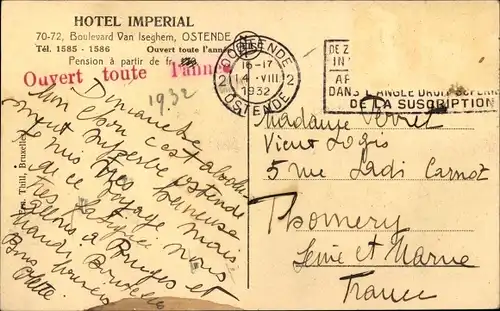 HOTEL IMPERIAL
70-72, Boulevard Van Iseghem, OSTENDE
Tél. 1585 - 1586 Ouvert toute l'anné
Pension à partir de fr.
Ouvert toute l'anné
1932
Ern. Thill, Bruxelles
Dimanche
Mon c'est absolu-
ment superbe ostende
Je suis très heureuse
de ce voyage mais
très fatigué nous
allons à Bruges et
mardi Bruxelles
Bons baisers
Odette
OOSTENDE
16-17
14 -VIII
1932
2 2
OSTENDE
DANS L'ANGLE DROIT SUPER
DE LA SUSCRIPTION
Madame Verret
Vieux Logis
5 rue Sadi Carnot
Thomery
Seine et Marne
France